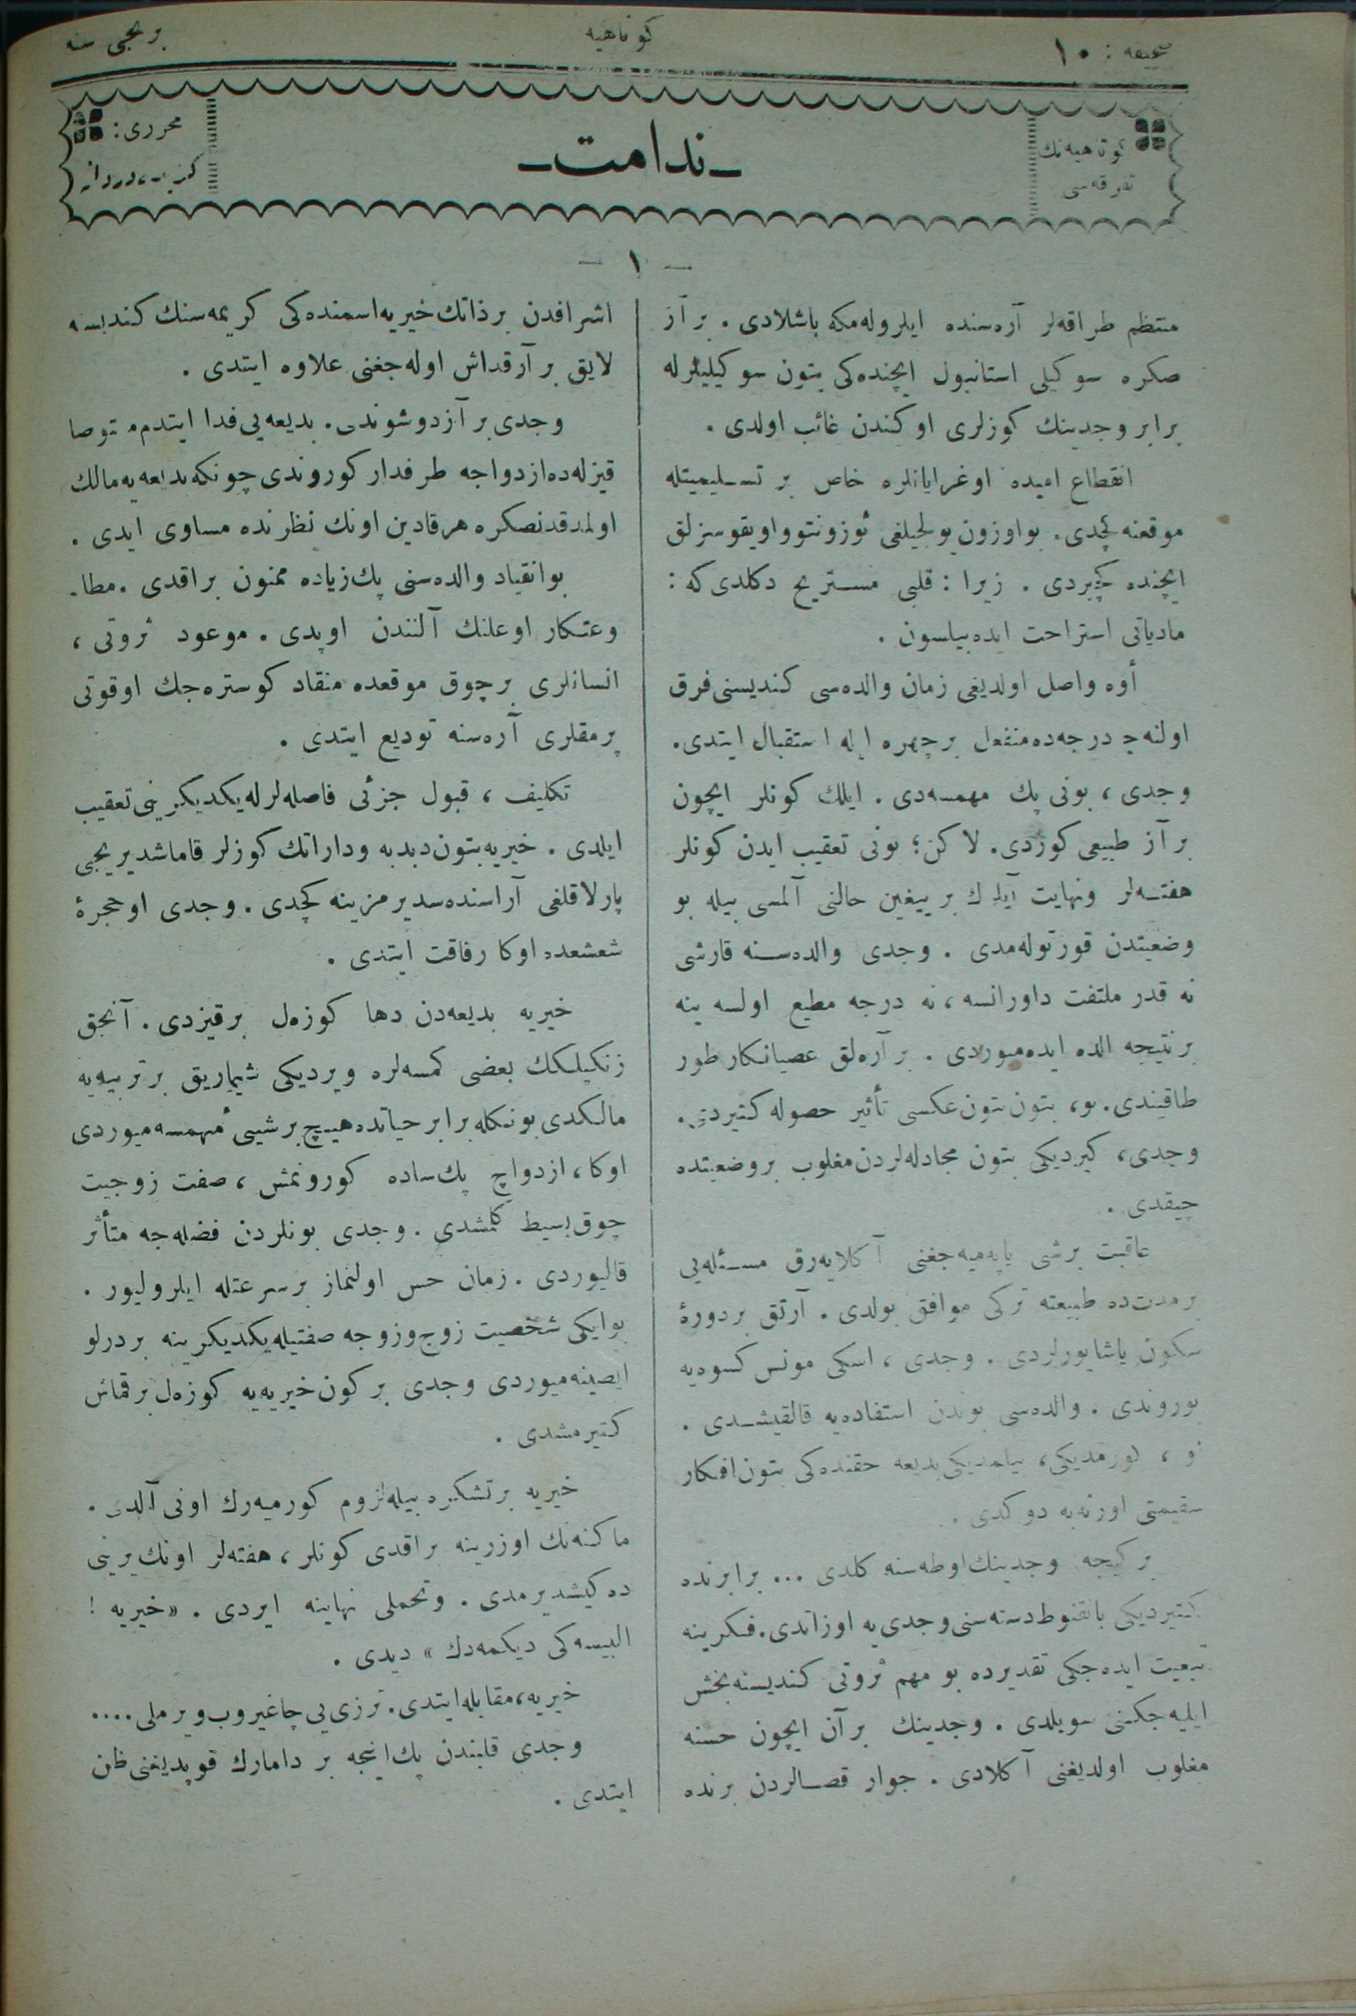 صحیفه : ١٠
كوتاهیه
برنجی سنه
كوتاهیه‌نك
تفرقه‌سی
ـ ندامت ـ
محرری :
— ١ —
منتظم طراقه‌لر آره‌سنده ایلروله‌مكه باشلادی . بر آز
صكره سوكیلی استانبول ایچنده‌كی بتون سوكیلیلرله
برابر وجدینك كوزلری اوكندن غائب اولدی .
انقطاع امیده اوغرایانلره خاص بر تسلیمیتله
موقعنه كچدی . بو اوزون یولجیلغی ئوزونتو و اویقوسزلق
ایچنده كچیردی . زیرا : قلبی مستریح دكلدی كه :
مادیاتی استراحت ایده بیلسون .
أوه واصل اولدیغی زمان والده‌سی كندیسنی فرق
اولنه‌جق درجه‌ده منفعل بر چهره ایله استقبال ایتدی .
وجدی ، بونی پك مهمسه‌دی . ایلك كونلر ایچون
بر آز طبیعی كوردی . لاكن ؛ بونی تعقیب ایدن كونلر
هفته‌لر ونهایت آیلرك بر ییغین حالنی آلمسی بیله بو
وضعیتدن قورتوله‌مدی . وجدی والده‌سنه قارشی
نه قدر ملتفت داورانسه ، نه درجه مطیع اولسه ینه
بر نتیجه الده ایده‌میوردی . بر آره‌لق عصیانكار طور
طاقیندی . بو ، بتون بتون عكسی تأثیر حصوله كتیردی .
وجدی ، كیردیكی بتون مجادله‌لردن مغلوب بر وضعیتده
چیقدی .
عاقبت بر شی یاپه‌میه‌جغنی آكلایه‌رق مسئله‌یی
بر مدت‌ده طبیعته تركی موافق بولدی . آرتق بر دورهٔ
سكون یاشایورلردی . وجدی ، اسكی مونس كسوه‌یه
بوروندی . والده‌سی بوندن استفاده‌یه قالقیشدی .
او ، كورمدیكی ، بیلمدیكی بدیعه حقنده‌كی بتون افكار
سقیمتی اورته‌یه دوكدی .
بر كیجه وجدینك اوطه‌سنه كلدی ... برابرنده
كتیردیكی بانقنوط دسته‌سنی وجدی‌یه اوزاتدی . فكرینه
تبعیت ایده‌جكی تقدیرده بو مهم ثروتی كندیسنه بخش
ایلیه‌جكنی سویلدی . وجدینك بر آن ایچون حسنه
مغلوب اولدیغنی آكلادی . جوار قصالردن برنده
اشرافدن بر ذاتك خیریه اسمنده‌كی كریمه‌سنك كندیسنه
لایق بر آرقداش اوله‌جغنی علاوه ایتدی .
وجدی بر آز دوشوندی . بدیعه‌یی فدا ایتدم
قیزله‌ده ازدواجه طرفدار كوروندی چونكه بدیعه‌یه مالك
اولمدقدنصكره هر قادین اونك نظرنده مساوی ایدی .
بو انقیاد والده‌سنی پك زیاده ممنون براقدی . مطا‌ـ
وعتكار اوغلنك آلنندن اوپدی . موعود ثروتی ،
انسانلری بر چوق موقعده منقاد كوستره‌جك او قوتی
پرمقلری آره‌سنه تودیع ایتدی .
تكلیف ، قبول جزئی فاصله‌لرله یكدیكرینی تعقیب
ایلدی . خیریه بتون دبدبه و داراتك كوزلر قاماشدیریجی
پارلاقلغی آراسنده سدیر مزینه كچدی . وجدی او حجرهٔ
شعشعده اوكا رفاقت ایتدی .
خیریه بدیعه‌دن دها كوزه‌ل بر قیزدی . آنجق
زنكینلكك بعضی كمسه‌لره ویردیكی شیماریق بر تربیه‌یه
مالكدی بونكله برابر حیاتده هیچ بر شیئی مهمسه‌میوردی
اوكا ، ازدواج پك ساده كورونمش ، صفت زوجیت
چوق بسیط كلمشدی . وجدی بونلردن فضله‌جه متأثر
قالیوردی . زمان حس اولنماز بر سرعتله ایلرولیور .
بو ایكی شخصیت زوج و زوجه صفتیله یكدیكرینه بر درلو
ایصینه‌میوردی وجدی بر كون خیریه‌یه كوزه‌ل بر قماش
كتیرمشدی .
خیریه بر تشكره بیله لزوم كورمیه‌رك اونی آلدی .
ماكنه‌نك اوزرینه براقدی كونلر ، هفته‌لر اونك یرینی
ده‌كیشدیرمدی . وتحملی نهاینه ایردی . « خیریه !
البیسه‌كی دیكمه‌دك » دیدی .
خیریه ، مقابله ایتدی . ترزی‌یی چاغیروب ویرملی ....
وجدی قلبندن پك اینجه بر دامارك قوپدیغنی ظن
ایتدی .